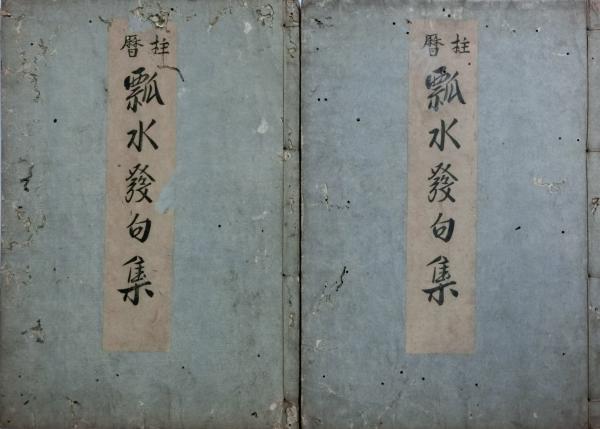 柱暦
瓢水發句集
柱暦
瓢水發句集